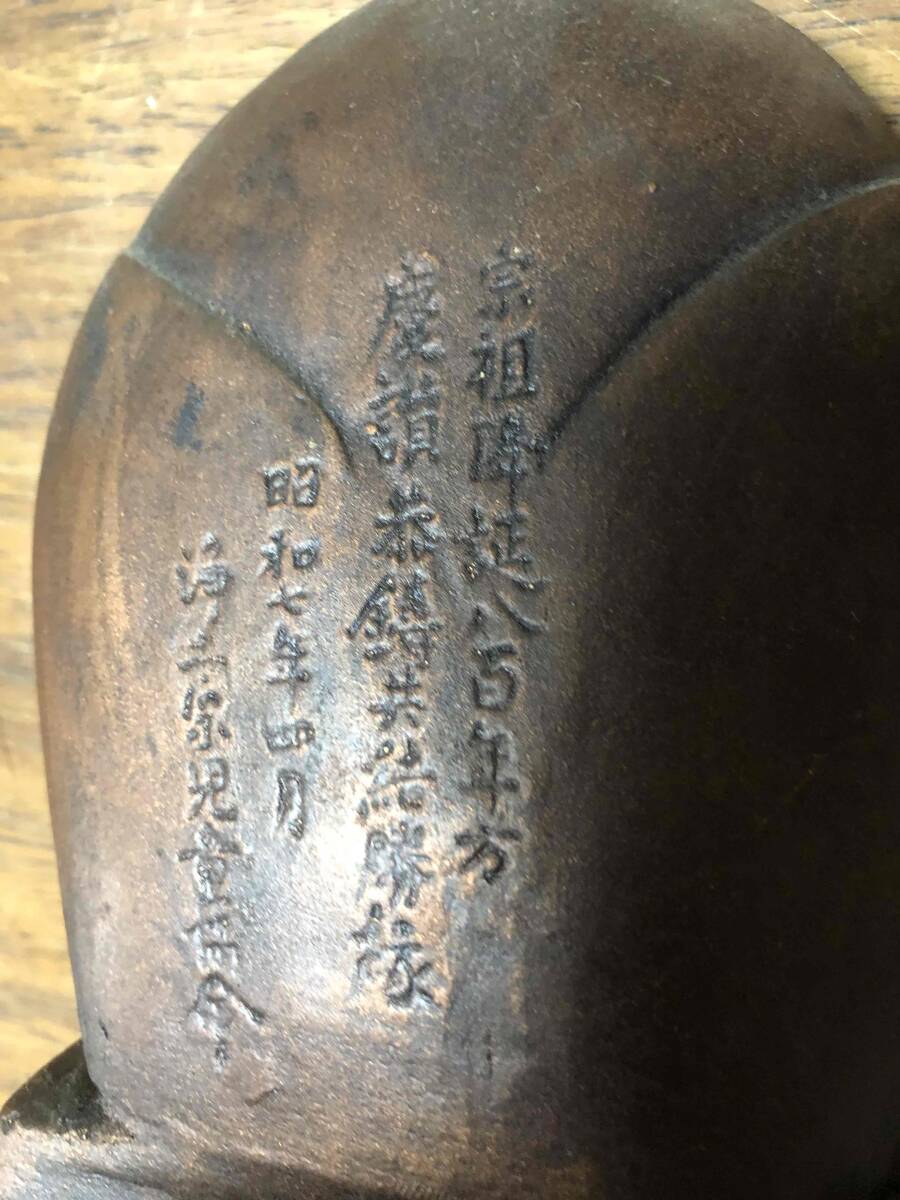 宗祖降誕八百年方
慶讃恭鑄共結勝縁
昭和七年四月
浄土宗児童育会